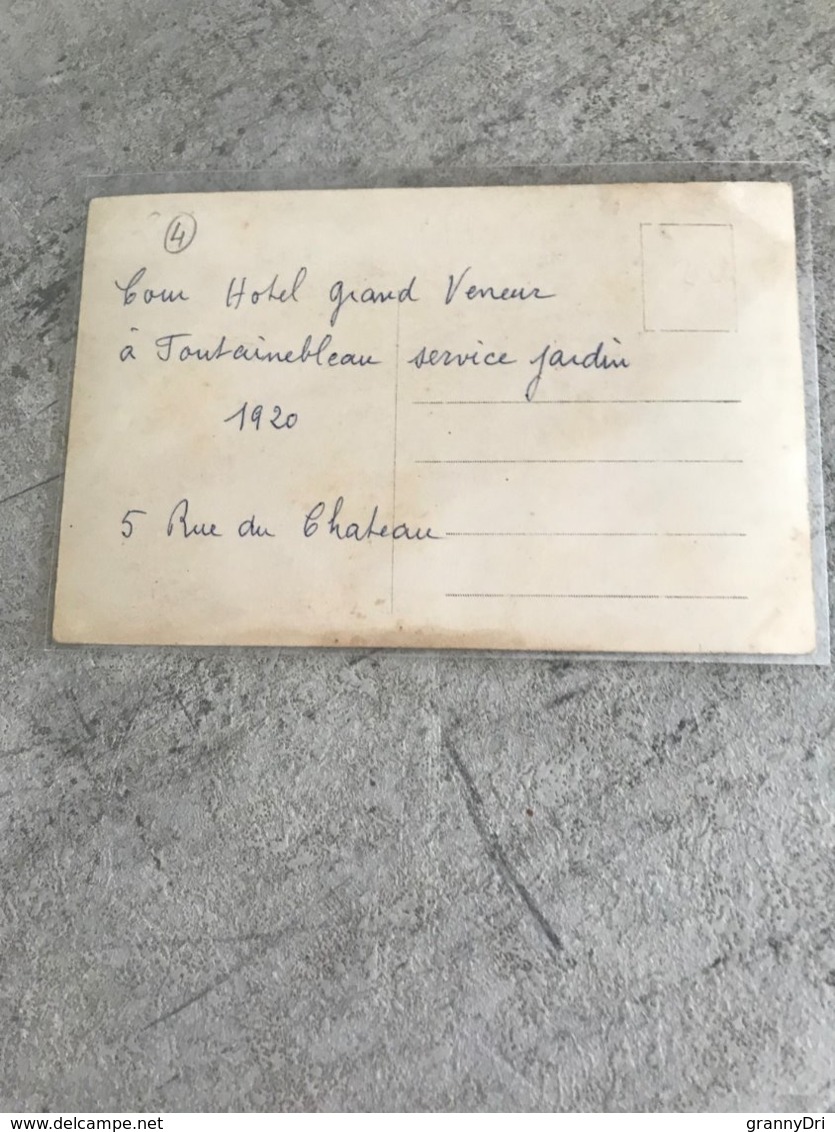 4
Cour Hotel grand Veneur
à Fontainebleau service jardin
1920
5 Rue du Chateau
www.delcampe.net
grannyDri